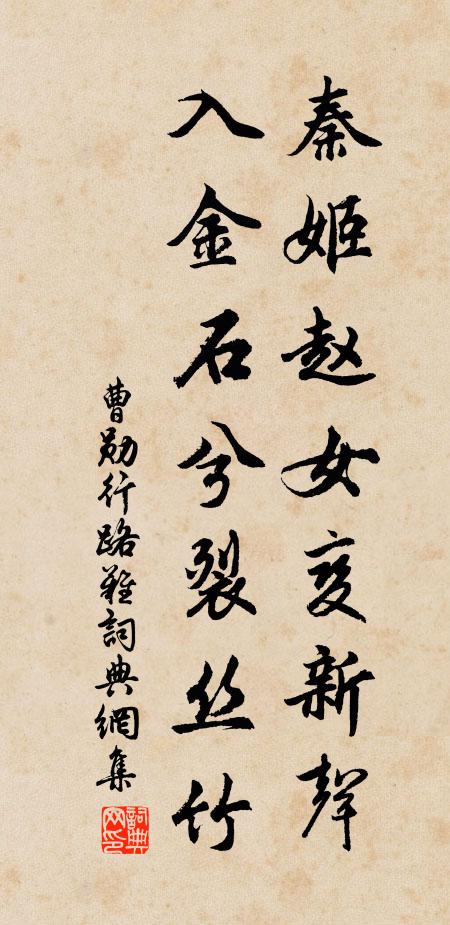 秦姬赵女变新聲
入金石兮裂丝竹
曹勋行路难詞典網集
詞典网印